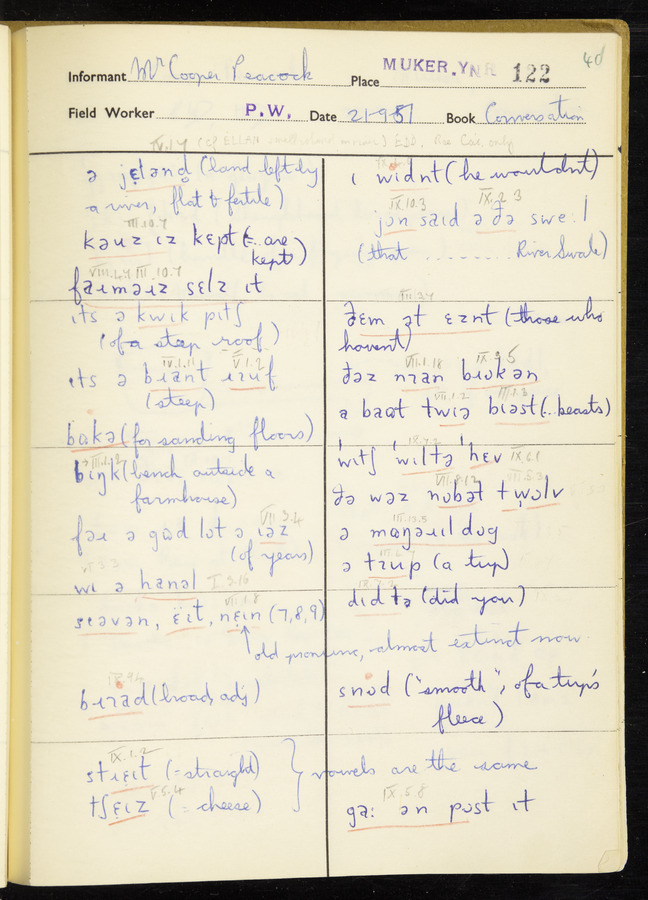 40
Informant Mr Cooper Peacock
Place MUKER. Y NR 122
Field Worker P.W. Date 2/1951 Book Conversation
ə jɛlənd (land left by
a river, flat & fertile)
III.10.7
kəuz ɪz kɛpt (= are
kept)
VIII.4.7 III.10.7
faɪməɪz sɛlz ɪt
ɪts ə kwɪk pɪtʃ
(of a steep roof)
V.1.2
ɪts ə bɪant ɪɪuf
(steep)
bakə (for sanding floors)
bɪŋk (bench outside a
farmhouse)
VII.3.4
fəɪ ə gud lot ə ɪəz
(of years)
V.5.3
wɪ ə hanəl I 3.16
VII.1.8
sɪəvən, ɛ̈ɪt, nɛɪn (7,8,9)
old pronunc, almost extinct now.
bɪɪad (broad, adj)
IX.1.2
stɪɛɪt (= straight)
V.5.4
tʃɛɪz (= cheese)
vowels are the same
ɪ wɪdnt (he wouldn't)
IX.10.3 IX.2.3
jən saɪd ə ðə swɛ:l
(that ......... River Swale)
ðɛm ət ɛznt (those who
haven't)
VII.1.18
ðəz nɪan bɪokən
VII.1.2
ə baʊt twɪə bɪəst (.. beasts)
wɪtʃ wɪltə hɛv IX.6.1
VII.8.12 VII.5.3
ðə wəz nobət twɒlv
III.13.5
ə maŋəɪɪl dɒg
ə tɪup (a tup)
dɪdtə (did you)
snod ("smooth", of a tup's
fleece)
IX.5.8
ga: ən pʊst ɪt